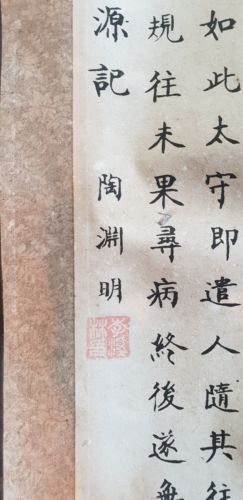 如此太守即遣人隨其往
規往未果尋病終後遂無
源記 陶淵明